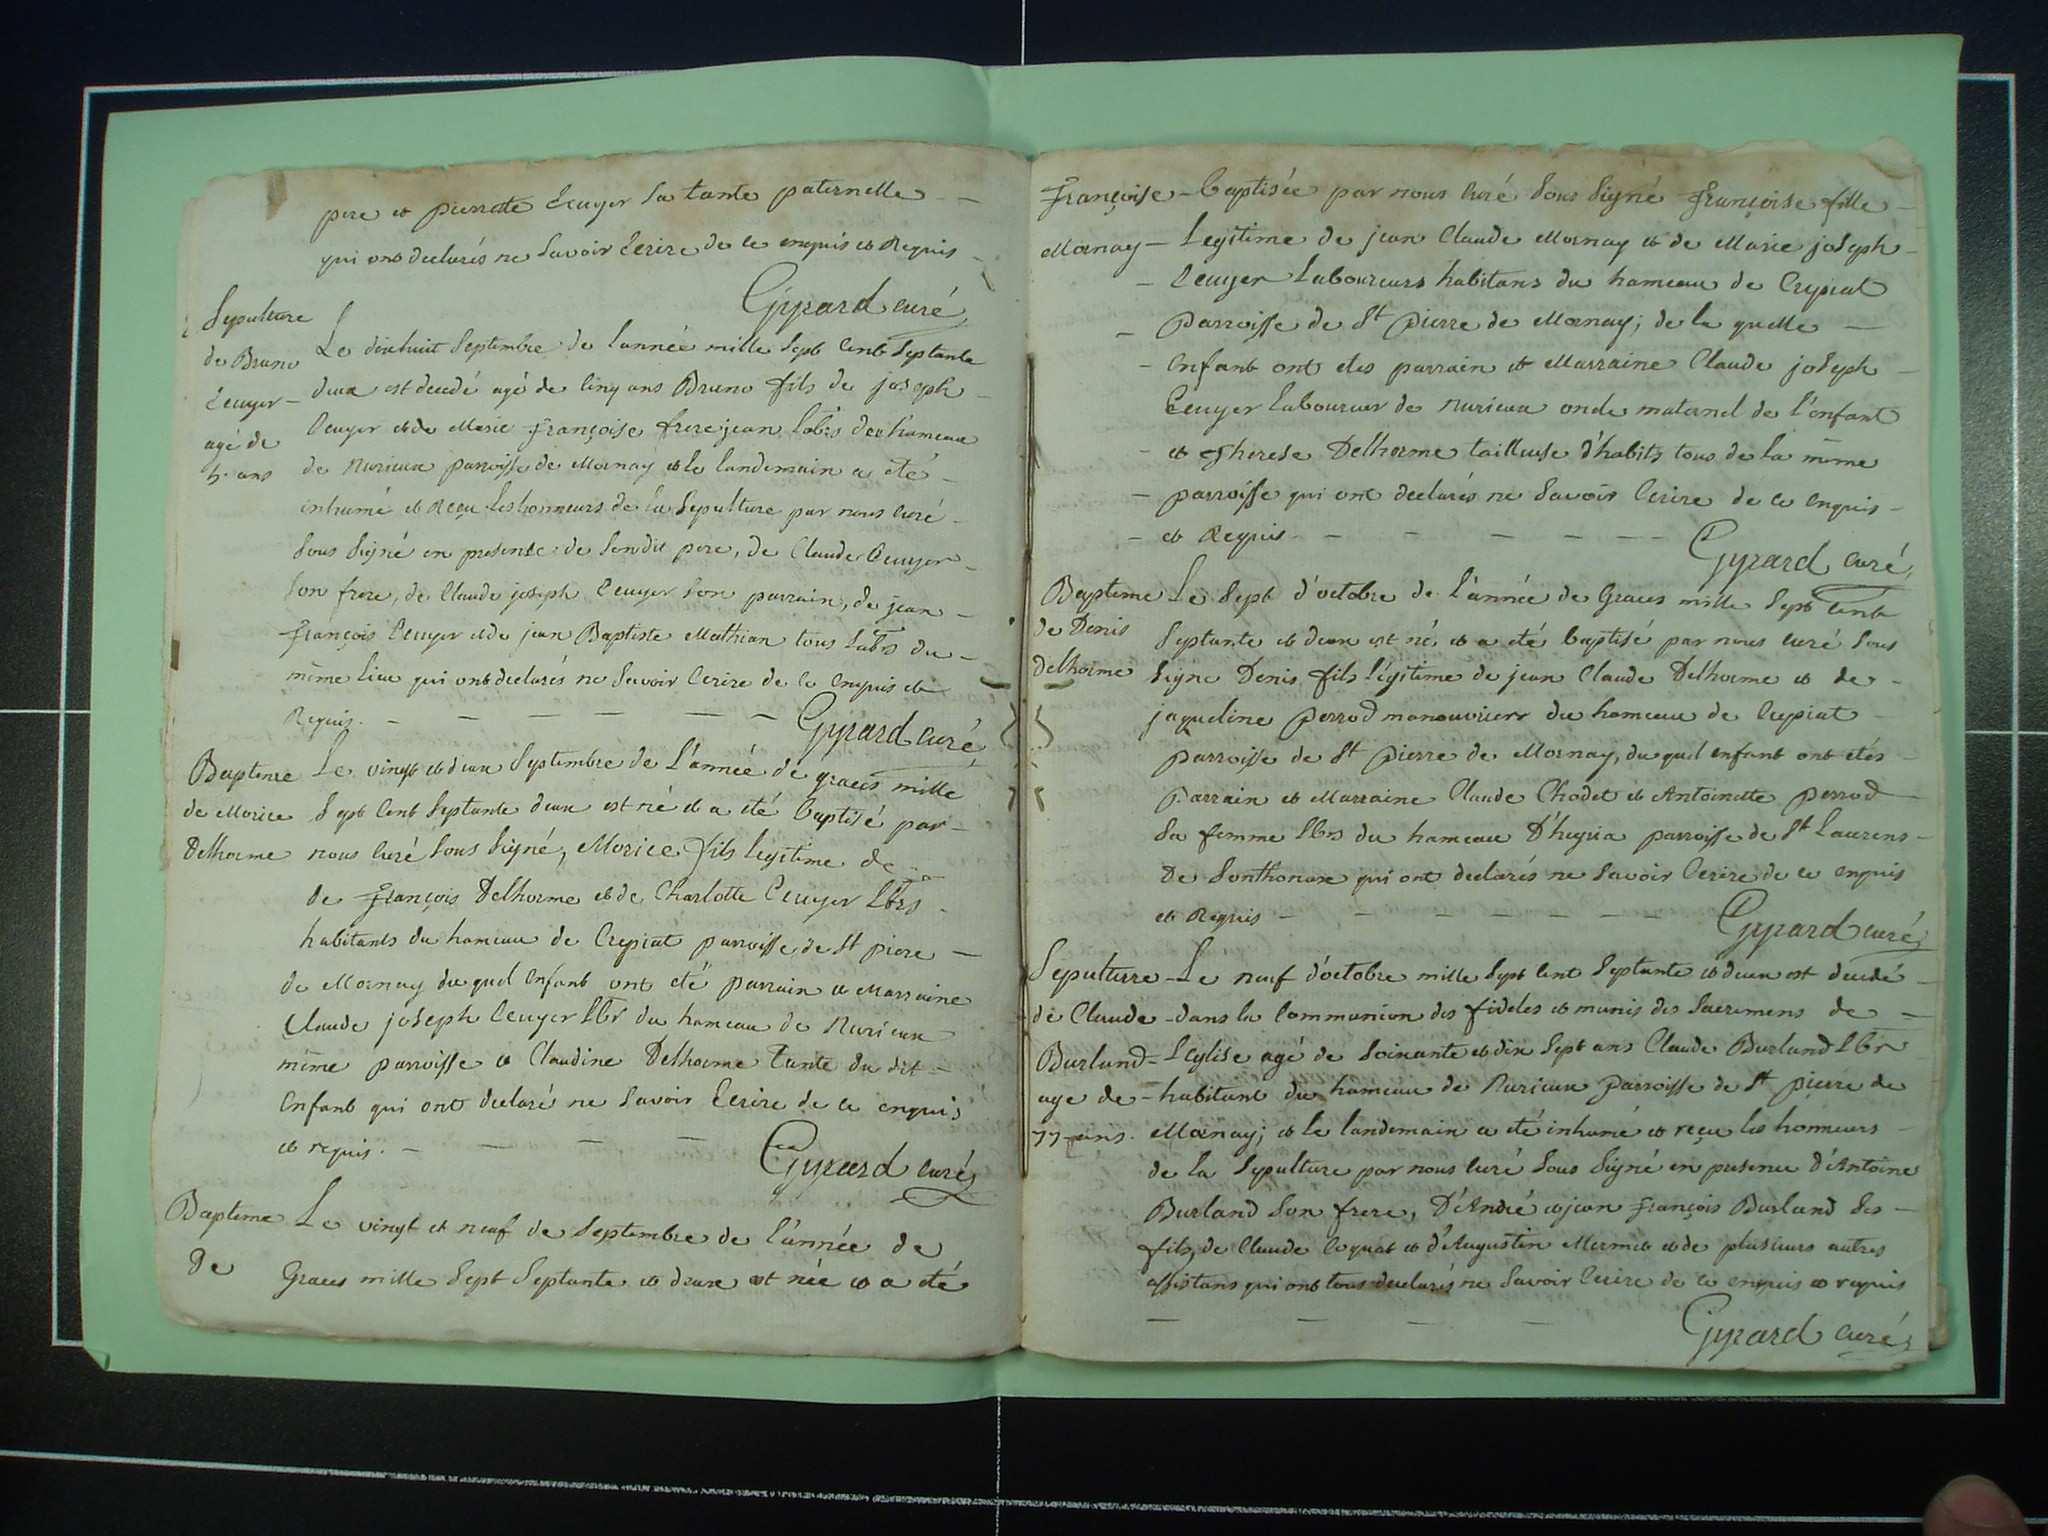 pere et pierrette Ecuyer Sa tante paternelle
qui ont declarés ne Savoir Ecrire de ce enquis et Requis
Gyrard curé
Sepulture
de Bruno
Ecuyer
agé de
5. ans
Le dixhuit Septembre de l'année mille Sept Cent Septante
deux est decedé agé de Cinq ans Bruno fils de joseph
Ecuyer et de Marie françoise frerejean labrs du hameau
de Nurieux parroisse de Mornay et le landemain a eté
inhumé et Reçu les honneurs de la Sepulture par nous Curé
Sous Signé en presense de Sondit pere, de Claude Ecuyer
Son frere, de Claude joseph Ecuyer Son parrain, de jean
françois Ecuyer et de jean Baptiste Mathian tous Labrs du
même lieu qui ont declarés ne Savoir Ecrire de ce enquis et
Requis.
Gyrard curé
Bapteme
de Morice
Delhorme
Le vingt et deux Septembre de L'année de graces mille
Sept Cent Septante deux est né et a été baptisé par
nous Curé Sous Signé, Morice fils legitime de
de françois Delhorme et de Charlotte Ecuyer Lbrs
habitants du hameau de Crepiat parroisse de St piere
de Mornay du quel Enfant ont eté parrain et Marraine
Claude joseph Ecuyer Lbr du hameau de Nurieux
même parroisse et Claudine Delhorme tante du dit
Enfant qui ont declaré ne Savoir Ecrire de ce enquis
et requis.
Gyrard curé
Bapteme
de
Le vingt et neuf de Septembre de l'année de
Graces mille Sept Septante et deux est née et a eté
françoise
Mornay
baptisée par nous Curé Sous Signé françoise fille
Legitime de jean Claude Mornay et de Marie joseph
Ecuyer Laboureurs habitans du hameau de Crepiat
parroisse de St pierre de Mornay; de la quelle
Enfant ont etes parrain et Marraine Claude joseph
Ecuyer Laboureur de Nurieux oncle maternel de l'enfant
et Therese Delhorme tailleuse d'habits tous de la même
parroisse qui ont declarés ne Savoir Ecrire de ce Enquis
et Requis
Gyrard curé
Bapteme
de Denis
Delhorme
Le Sept d'octobre de L'année de Graces mille Sept Cent
Septante et deux est né et a été baptisé par nous Curé Sous
Signe Denis fils légitime de jean Claude Delhorme et de
jaqueline perrod manouvriers du hameau de Crepiat
parroisse de St pierre de Mornay, du quel Enfant ont etés
parrain et Marraine Claude Chodet et Antoinette perrod
Sa femme Lbrs du hameau D'heyria parroisse de St Laurens
De Sonthonax qui ont declarés ne Savoir Ecrire de ce enquis
et Requis
Gyrard curé
Sepulture
de Claude
Burland
age de
77 ans.
Le neuf d'octobre mille Sept Cent Septante et deux est decedé
dans la Communion des fideles et munis des Sacremens de
L'Eglise agé de Soixante et dix Sept ans Claude Burland Lbr
habitant du hameau de Nurieux Parroisse de St pierre de
Mornay; et le landemain a eté inhumé et reçu les honneurs
de la Sepulture par nous Curé Sous Signé en presence d'Antoine
Burland Son frere, D'André et jean françois Burland Ses
fils, de Claude et d'Augustin Mermet et de plusieurs autres
assistans qui ont tous declarés ne Savoir Ecrire de ce enquis et requis
Gyrard curé